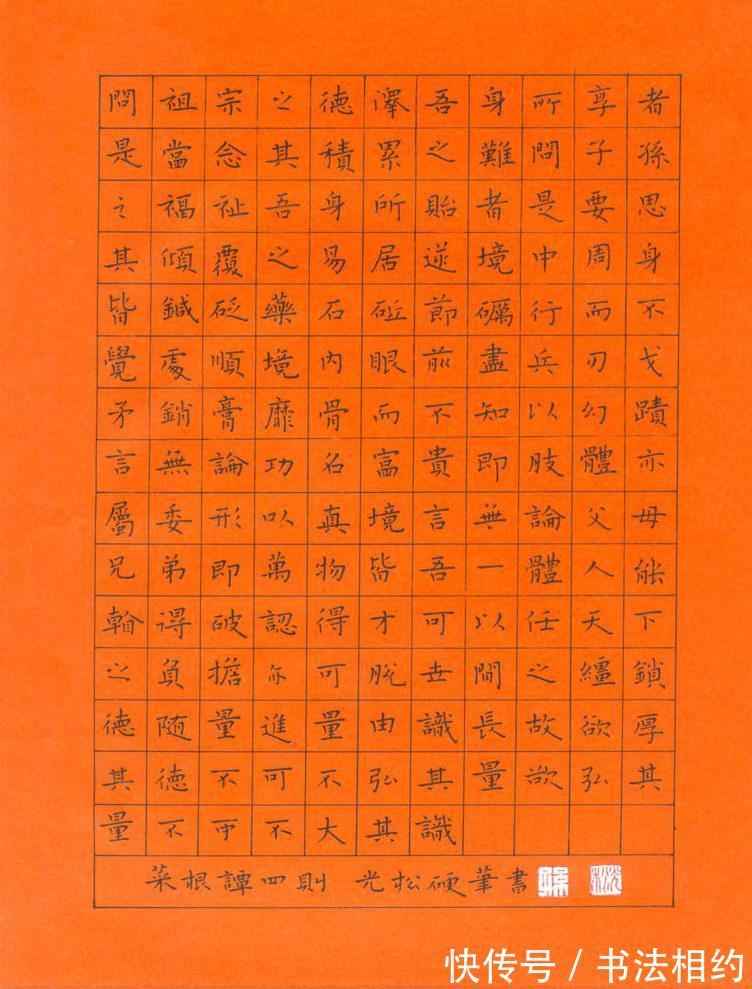 問祖宗之德澤吾身所享者
是當念其積累之難問子孫
之福祉吾身所貽者是要思
其傾覆之易居逆境中周身
皆鍼砭藥石砥節礪行而不
覺處順境內眼前盡兵刃戈
矛銷膏靡骨而不知以幻蹟
言無論功名富貴即肢體亦
屬委形以真境言無論父母
兄弟即萬物皆吾一體人能
得破認得才可以任天下
之負擔亦可脫世間之繮鎖
德隨量進量由識長故欲厚
其德不可不弘其量欲弘其
量不可不大其識
菜根譚四則 光松硬筆書
快传号 / 书法相约